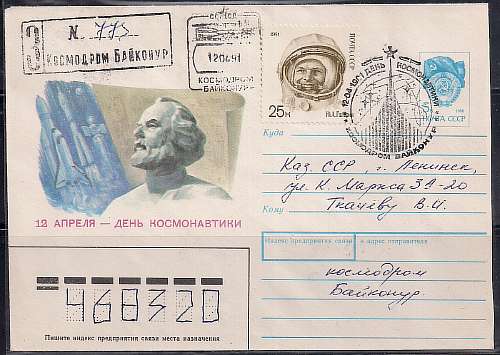 З
N. 773
Космодром Байконур
СССР
120491
КОСМОДРОМ
БАЙКОНУР
1991
ПОЧТА СССР
25к
Ю.Гагарин
12·04·1991 ДЕНЬ КОСМОНАВТИКИ
КОСМОДРОМ БАЙКОНУР
ПОЧТА СССР
Куда
Каз. ССР г. Ленинск,
ул. К. Маркса 31-20
Кому
Ткачеву В.И.
12 АПРЕЛЯ — ДЕНЬ КОСМОНАВТИКИ
Индекс предприятия связи и адрес отправителя
космодром
Байконур
468320
Пишите индекс предприятия связи места назначения